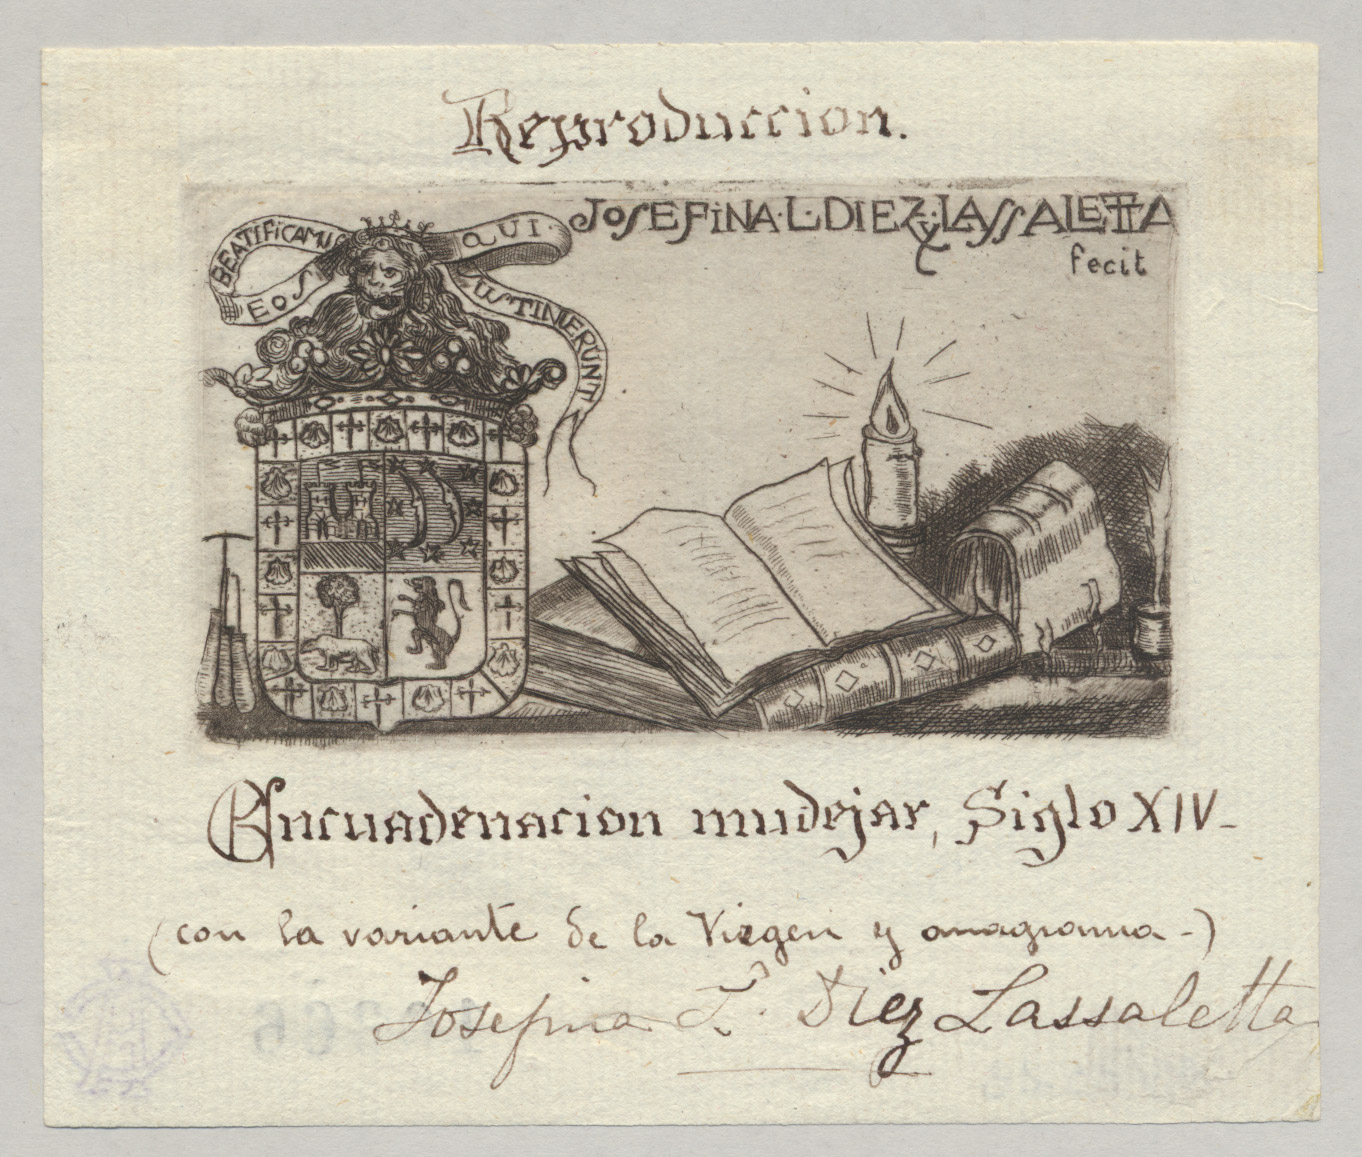 Reproduccion.
JOSEFINA·L·DIEZ y LASSALETTA
fecit
BEATIFiCAMUS
EOS
QUI·
SUSTINERUNT
Encuadenacion mudejar, Siglo XIV-
(con la variante de la Virgen y anagrama-)
Josefina L. Diez Lassaletta